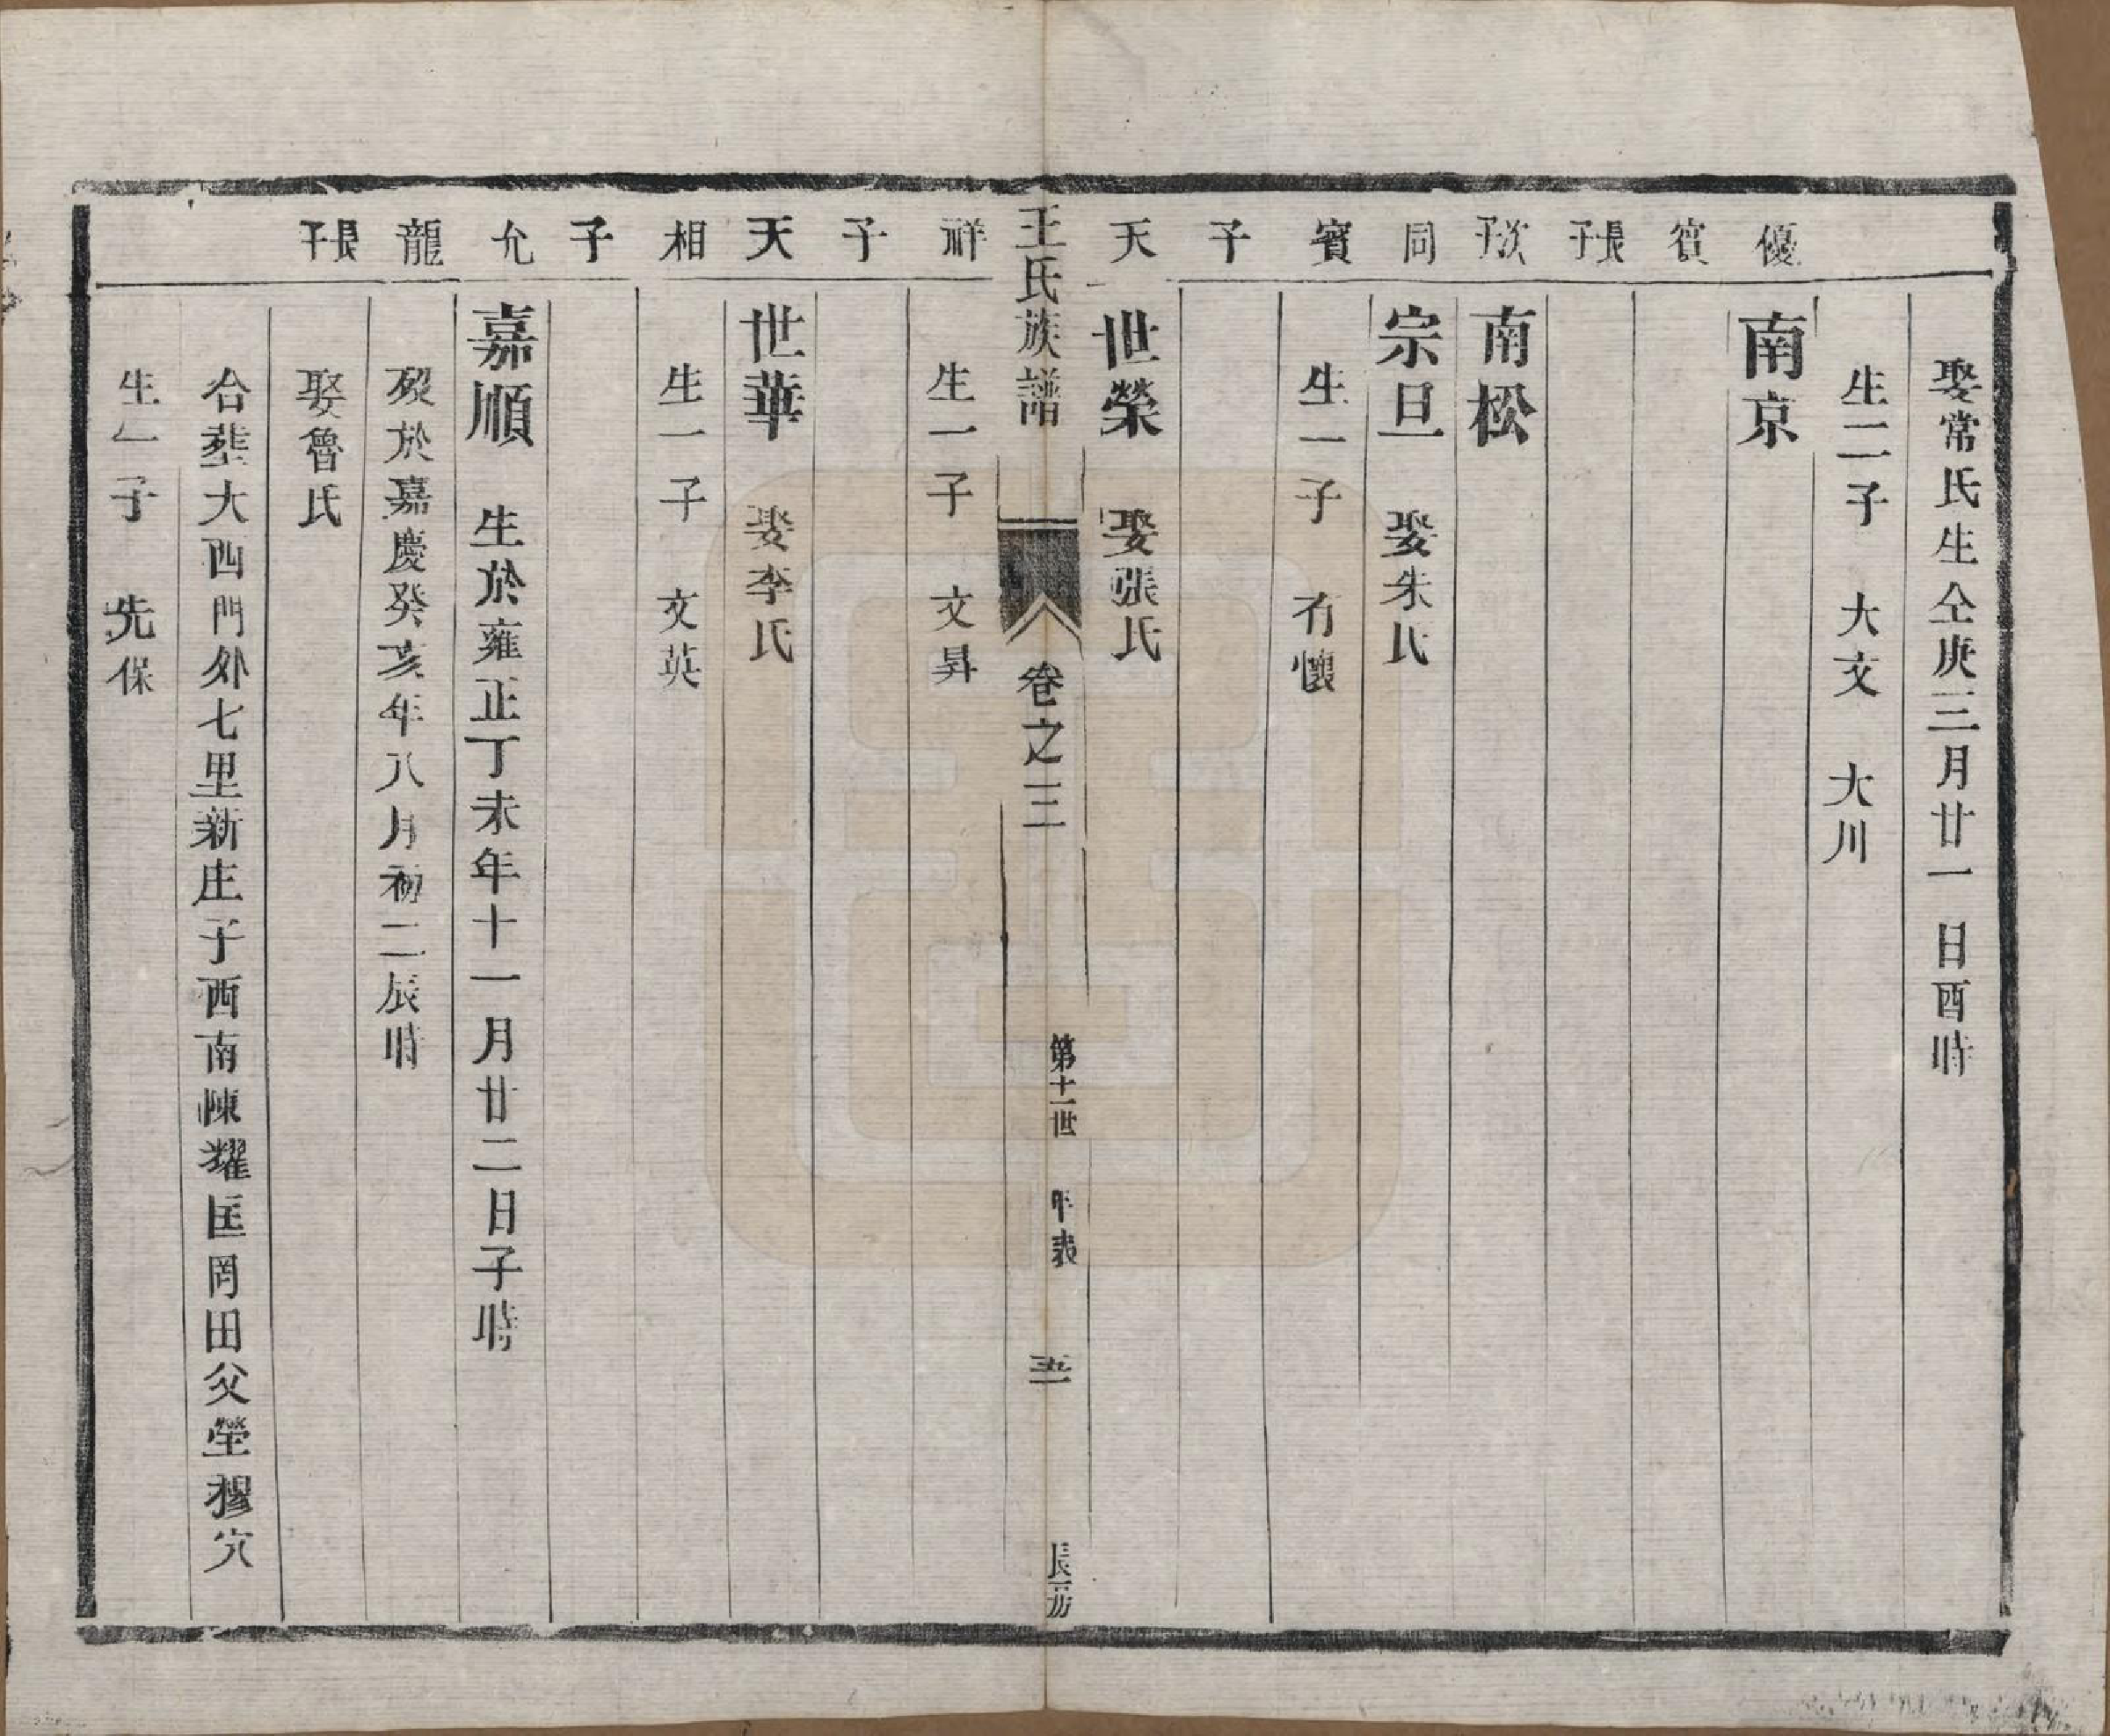 娶常氏生仝庚三月廿一日酉時
生二子　大文　大川
優賓長子
南京
次子
南松
同賓子
宗旦　娶朱氏
生一子　有懷
天祥子
世榮　娶張氏
王氏族譜　卷之三　第十一世　年表　五一　長房
生一子　文昇
天相子
世華　娶李氏
生一子　文英
允龍長子
嘉順　生於雍正丁未年十一月廿二日子時
歿於嘉慶癸亥年八月初二辰時
娶魯氏
合塟大西門外七里新庄子西南陳耀匡岡田父塋穆穴
生一子　先保